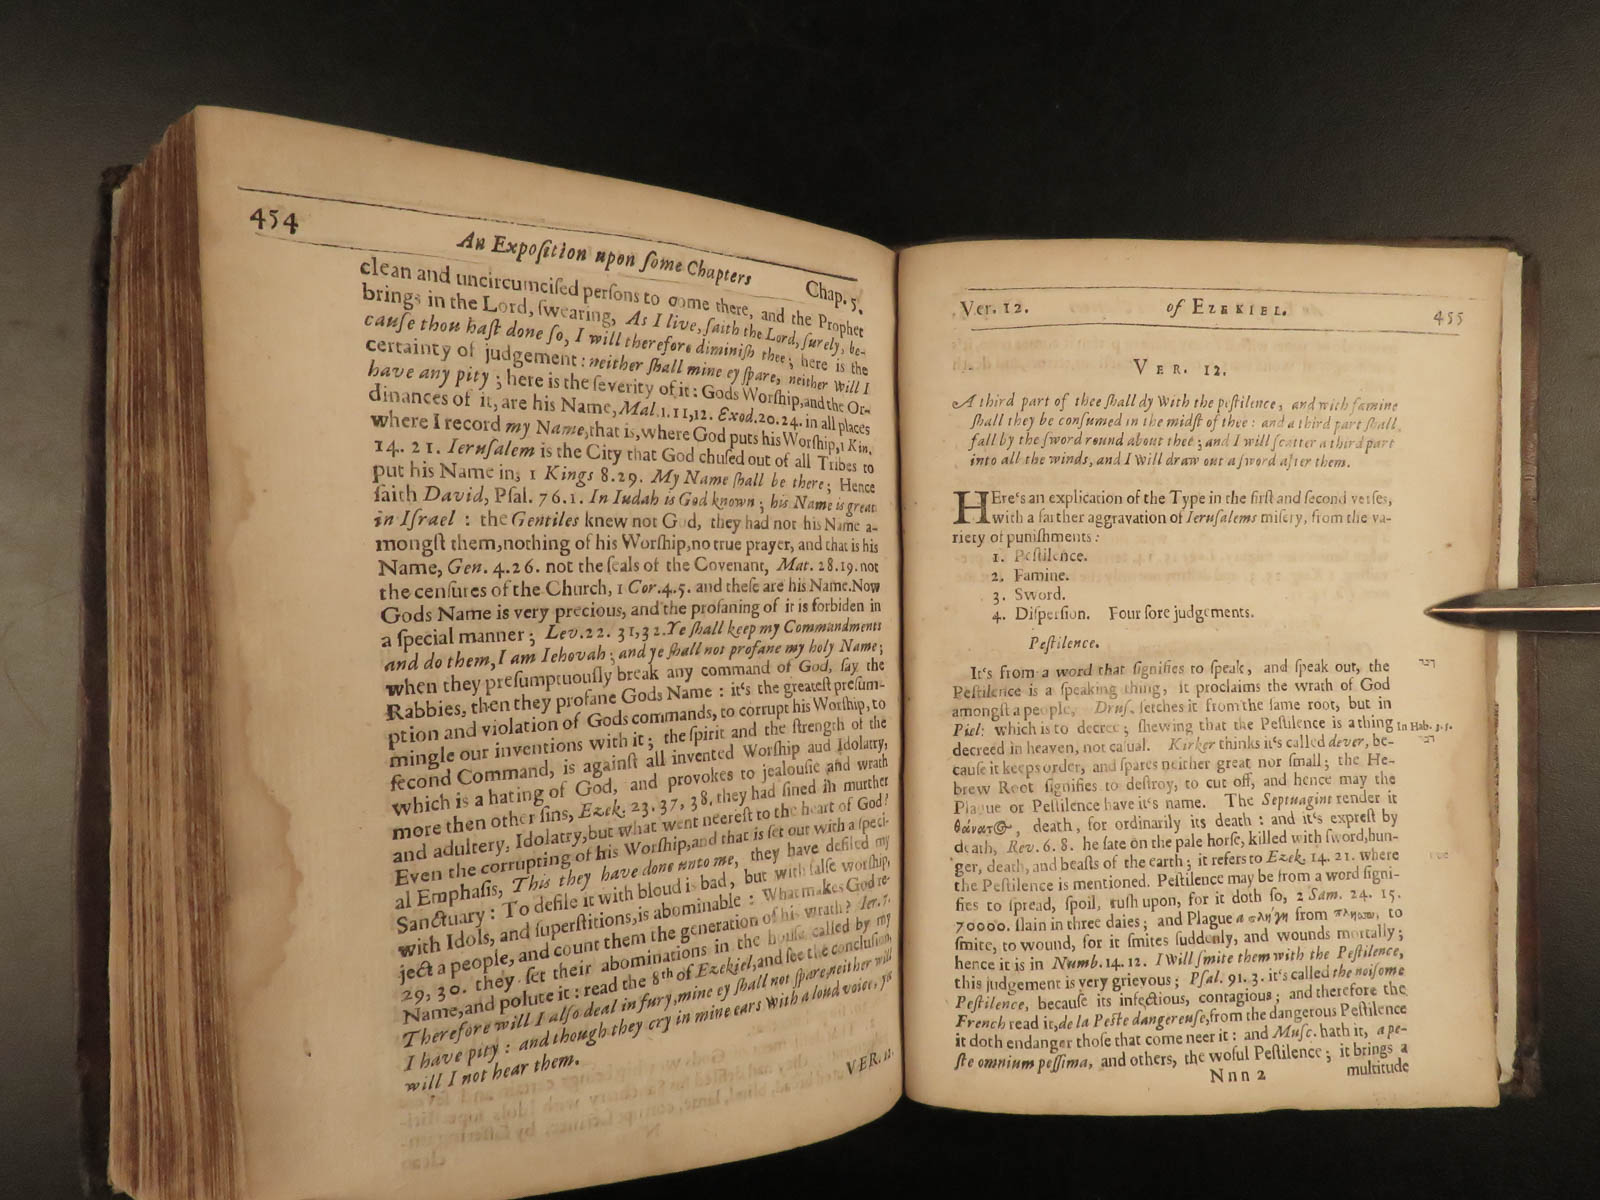 454
An Expoſition upon ſome Chapters
Chap. 5.
clean and uncircumciſed perſons to come there, and the Prophet
brings in the Lord, ſwearing, As I live, ſaith the Lord, ſurely, be-
cauſe thou haſt done ſo, I will therefore diminiſh thee; here is the
certainty of judgement: neither ſhall mine ey ſpare, neither will I
have any pity; here is the ſeverity of it: Gods Worſhip, and the Or-
dinances of it, are his Name, Mal. 1. 11, 12. Exod. 20. 24. in all places
where I record my Name, that is, where God puts his Worſhip, 1 Kin.
14. 21. Ieruſalem is the City that God chuſed out of all Tribes to
put his Name in, 1 Kings 8. 29. My Name ſhall be there; Hence
ſaith David, Pſal. 76. 1. In Iudah is God known; his Name is great
in Iſrael: the Gentiles knew not God, they had not his Name a-
mongſt them, nothing of his Worſhip, no true prayer, and that is his
Name, Gen. 4. 26. not the ſeals of the Covenant, Mat. 28. 19. not
the cenſures of the Church, 1 Cor. 4. 5. and theſe are his Name. Now
Gods Name is very precious, and the profaning of it is forbiden in
a ſpecial manner; Lev. 22. 31, 32. Ye ſhall keep my Commandments
and do them, I am Iehovah; and ye ſhall not profane my holy Name;
when they preſumptuouſly break any command of God, ſay the
Rabbies, then they profane Gods Name: it's the greateſt preſum-
ption and violation of Gods commands, to corrupt his Worſhip, to
mingle our inventions with it; the ſpirit and the ſtrength of the
ſecond Command, is againſt all invented Worſhip and Idolatry,
which is a hating of God, and provokes to jealouſie and wrath
more then other ſins, Ezek. 23. 37, 38. they had ſined in murther
and adultery, Idolatry, but what went neereſt to the heart of God?
Even the corrupting of his Worſhip, and that is ſet out with a ſpeci-
al Emphaſis, This they have done unto me, they have defiled my
Sanctuary: To defile it with bloud is bad, but with falſe worſhip,
with Idols, and ſuperſtitions, is abominable: What makes God re-
ject a people, and count them the generation of his wrath? Ier. 7.
29, 30. they ſet their abominations in the houſe called by my
Name, and polute it: read the 8th of Ezekiel, and ſee the concluſion,
Therefore will I alſo deal in fury, mine ey ſhall not ſpare, neither will
I have pity: and though they cry in mine ears with a loud voice, yet
will I not hear them.
VER. 12.
Ver. 12.
of EZEKIEL.
455
VER. 12.
A third part of thee ſhall dy with the peſtilence, and with famine
ſhall they be conſumed in the midſt of thee: and a third part ſhall
fall by the ſword round about thee; and I will ſcatter a third part
into all the winds, and I will draw out a ſword after them.
HEre's an explication of the Type in the firſt and ſecond verſes,
with a farther aggravation of Ieruſalems miſery, from the va-
riety of puniſhments:
1. Peſtilence.
2. Famine.
3. Sword.
4. Diſperſion. Four ſore judgements.
Peſtilence.
It's from a word that ſignifies to ſpeak, and ſpeak out, the
דבר
Peſtilence is a ſpeaking thing, it proclaims the wrath of God
amongſt a people, Druſ. fetches it from the ſame root, but in
Piel: which is to decree; ſhewing that the Peſtilence is a thing
In Hab. 3. 5.
decreed in heaven, not caſual. Kirker thinks it's called dever, be-
דבר
cauſe it keeps order, and ſpares neither great nor ſmall; the He-
brew Root ſignifies to deſtroy, to cut off, and hence may the
Plague or Peſtilence have it's name. The Septuagint render it
θάνατ⊙, death, for ordinarily its death: and it's expreſt by
death, Rev. 6. 8. he ſate on the pale horſe, killed with ſword, hun-
ger, death, and beaſts of the earth; it refers to Ezek. 14. 21. where
the Peſtilence is mentioned. Peſtilence may be from a word ſigni-
fies to ſpread, ſpoil, ruſh upon, for it doth ſo, 2 Sam. 24. 15.
70000. ſlain in three daies; and Plague a πληγή from πλήσσω, to
ſmite, to wound, for it ſmites ſuddenly, and wounds mortally;
hence it is in Numb. 14. 12. I will ſmite them with the Peſtilence,
this judgement is very grievous; Pſal. 91. 3. it's called the noiſome
Peſtilence, becauſe its infectious, contagious; and therefore the
French read it, de la Peſte dangereuſe, from the dangerous Peſtilence
it doth endanger thoſe that come neer it: and Muſc. hath it, a pe-
ſte omnium peſſima, and others, the woful Peſtilence; it brings a
Nnn 2
multitude